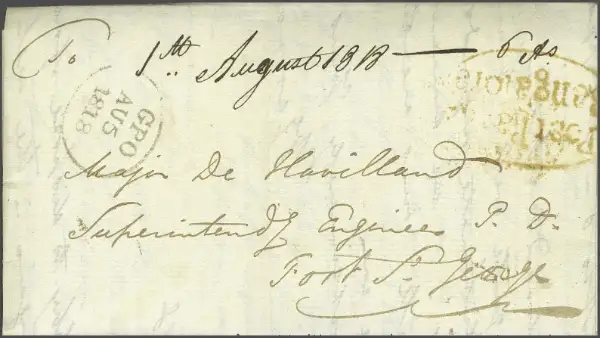 To 1st August 1818 — 6 As
GPO
AU 5
1818
Bangalore
Post Paid
Major De Havilland
Superintendg Engineer P. D.
Fort St. George